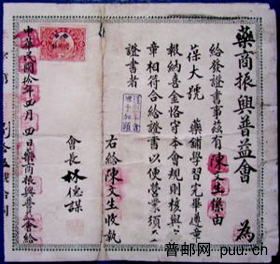 藥商振興普益會 為
給發證書事茲有陳文生係由
葆大號 藥鋪學習完畢遵章
報納喜金恪守本會規則核與
章相符合給證書以便營業須
證書者
右給陳文生收執
會長 林德謀
中華民國拾年五月四日藥商振興普益會給
普邮网 puu.cn